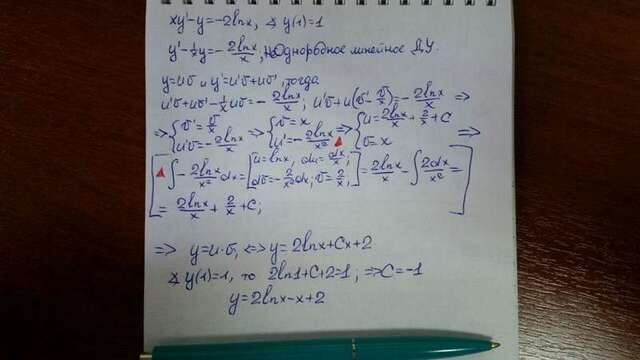 xy'-y=-2lnx, ∢ y(1)=1
y'-1/x y=-2lnx/x, неоднородное линейное ДУ.
y=uv и y'=u'v+uv', тогда
u'v+uv'-1/x uv=-2lnx/x; u'v+u(v'-v/x)=-2lnx/x =>
=> { v'=v/x; u'v=-2lnx/x => { v=x; u'=-2lnx/x² => { u=2lnx/x+2/x+C; v=x =>
[ ∫-2lnx/x² dx=[u=lnx, du=dx/x; dv=-2/x² dx; v=2/x,]=2lnx/x-∫2dx/x²=
=2lnx/x+2/x+C; ]
=> y=u·v, <=> y=2lnx+Cx+2
∢ y(1)=1, то 2ln1+C+2=1; => C=-1
y=2lnx-x+2